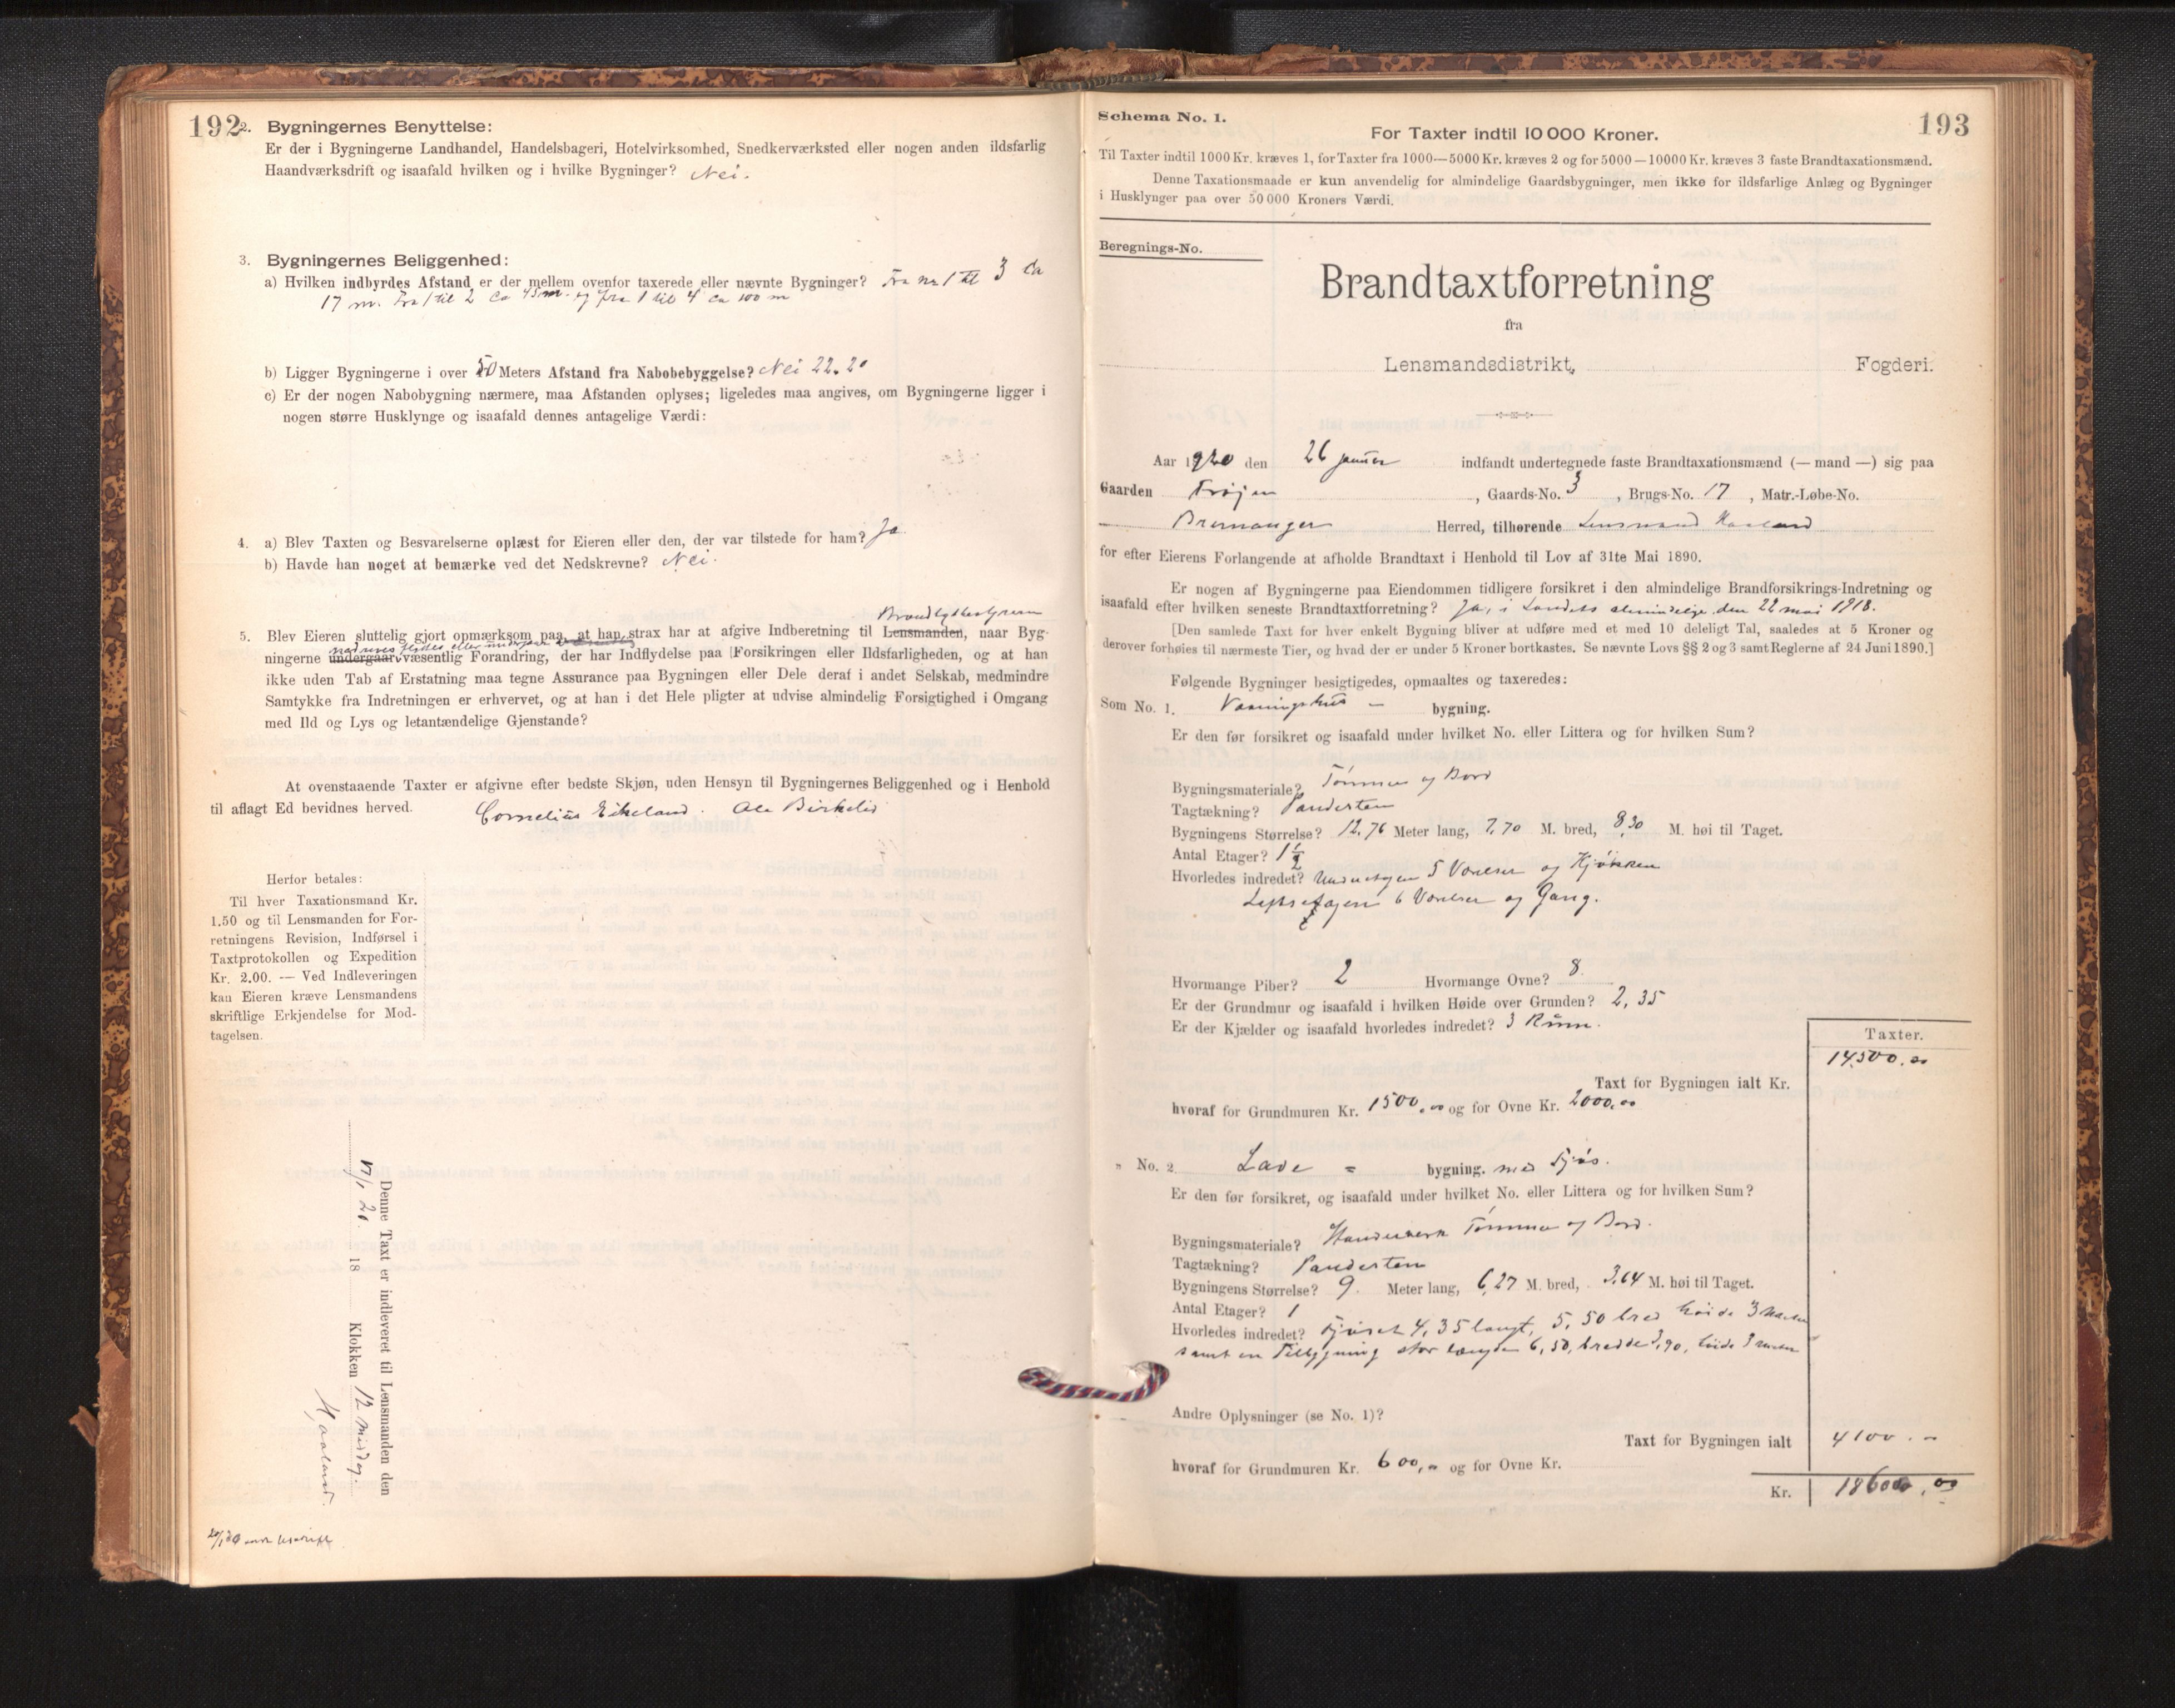 192
2. Bygningernes Benyttelse:
Er der i Bygningerne Landhandel, Handelsbageri, Hotelvirksomhed, Snedkerværksted eller nogen anden ildsfarlig
Haandværksdrift og isaafald hvilken og i hvilke Bygninger? Nei.
3. Bygningernes Beliggenhed:
a) Hvilken indbyrdes Afstand er der mellem ovenfor taxerede eller nævnte Bygninger? Fra no 1 til 3 ca
17 m. Fra 1 til 2 ca 45 m. og fra 1 til 4 ca 100 m
b) Ligger Bygningerne i over 50 Meters Afstand fra Nabobebyggelse? Nei 22.20
c) Er der nogen Nabobygning nærmere, maa Afstanden oplyses; ligeledes maa angives, om Bygningerne ligger i
nogen større Husklynge og isaafald dennes antagelige Værdi:
4. a) Blev Taxten og Besvarelserne oplæst for Eieren eller den, der var tilstede for ham? Ja
b) Havde han noget at bemærke ved det Nedskrevne? Nei.
Brandstyrer
5. Blev Eieren sluttelig gjort opmærksom paa, at han strax har at afgive Indberetning til Lensmanden, naar Byg-
nedrives flyttes eller undergaar
ningerne undergaar væsentlig Forandring, der har Indflydelse paa Forsikringen eller Ildsfarligheden, og at han
ikke uden Tab af Erstatning maa tegne Assurance paa Bygningen eller Dele deraf i andet Selskab, medmindre
Samtykke fra Indretningen er erhvervet, og at han i det Hele pligter at udvise almindelig Forsigtighed i Omgang
med Ild og Lys og letantændelige Gjenstande?
At ovenstaaende Taxter er afgivne efter bedste Skjøn, uden Hensyn til Bygningernes Beliggenhed og i Henhold
til aflagt Ed bevidnes herved. Cornelius Eikeland. Ole Birkelid
Herfor betales:
Til hver Taxationsmand Kr.
1.50 og til Lensmanden for For-
retningens Revision, Indførsel i
Taxtprotokollen og Expedition
Kr. 2.00. — Ved Indleveringen
kan Eieren kræve Lensmandens
skriftlige Erkjendelse for Mod-
tagelsen.
Denne Taxt er indleveret til Lensmanden den
18 Klokken 12 middag.
Haaland.
193
Schema No. 1.
For Taxter indtil 10 000 Kroner.
Til Taxter indtil 1000 Kr. kræves 1, for Taxter fra 1000—5000 Kr. kræves 2 og for 5000—10000 Kr. kræves 3 faste Brandtaxationsmænd.
Denne Taxationsmaade er kun anvendelig for almindelige Gaardsbygninger, men ikke for ildsfarlige Anlæg og Bygninger
i Husklynger paa over 50 000 Kroners Værdi.
Beregnings-No.
Brandtaxtforretning
fra
Lensmandsdistrikt, Fogderi.
Aar 1920 den 26 januar indfandt undertegnede faste Brandtaxationsmænd (— mand —) sig paa
Gaarden Frøjen, Gaards-No. 3, Brugs-No. 17, Matr.-Løbe-No.
Bremanger Herred, tilhørende Lensmand Haaland
for efter Eierens Forlangende at afholde Brandtaxt i Henhold til Lov af 31te Mai 1890.
Er nogen af Bygningerne paa Eiendommen tidligere forsikret i den almindelige Brandforsikrings-Indretning og
isaafald efter hvilken seneste Brandtaxtforretning? Ja, i Landets almindelige den 22 mai 1918.
[Den samlede Taxt for hver enkelt Bygning bliver at udføre med et med 10 deleligt Tal, saaledes at 5 Kroner og
derover forhøies til nærmeste Tier, og hvad der er under 5 Kroner bortkastes. Se nævnte Lovs §§ 2 og 3 samt Reglerne af 24 Juni 1890.]
Følgende Bygninger besigtigedes, opmaaltes og taxeredes:
Som No. 1. Vaaningshus - bygning.
Er den før forsikret og isaafald under hvilket No. eller Littera og for hvilken Sum?
Bygningsmateriale? Tømmer og Bord
Tagtækning? Pandesten
Bygningens Størrelse? 12,76 Meter lang, 7,70 M. bred, 8,30 M. høi til Taget.
Antal Etager? 1 1/2
Hvorledes indredet? Underetagen 5 Værelser og Kjøkken
Loftsetagen 6 Værelser og Gang.
Hvormange Piber? 2 Hvormange Ovne? 8.
Er der Grundmur og isaafald i hvilken Høide over Grunden? 2,35
Er der Kjælder og isaafald hvorledes indredet? 3 Rum.
Taxter.
14500.00
Taxt for Bygningen ialt Kr.
hvoraf for Grundmuren Kr. 1500,00 og for Ovne Kr. 2000,00
" No. 2. Lade = bygning. med Fjøs.
Er den før forsikret, og isaafald under hvilket No. eller Littera og for hvilken Sum?
Bygningsmateriale? Standerverk Tømmer og Bord.
Tagtækning? Pandesten
Bygningens Størrelse? 9. Meter lang, 6,27 M. bred, 3,64 M. høi til Taget.
Antal Etager? 1
Hvorledes indredet? Fjøset 4,35 langt, 5,50 bred høide 3 meter
samt en Tilbygning stor længde 6,50, bredde 3,90, høide 3 meter
Andre Oplysninger (se No. 1)?
Taxt for Bygningen ialt 4100.-
hvoraf for Grundmuren Kr. 600,00 og for Ovne Kr.
Kr. 18600,00